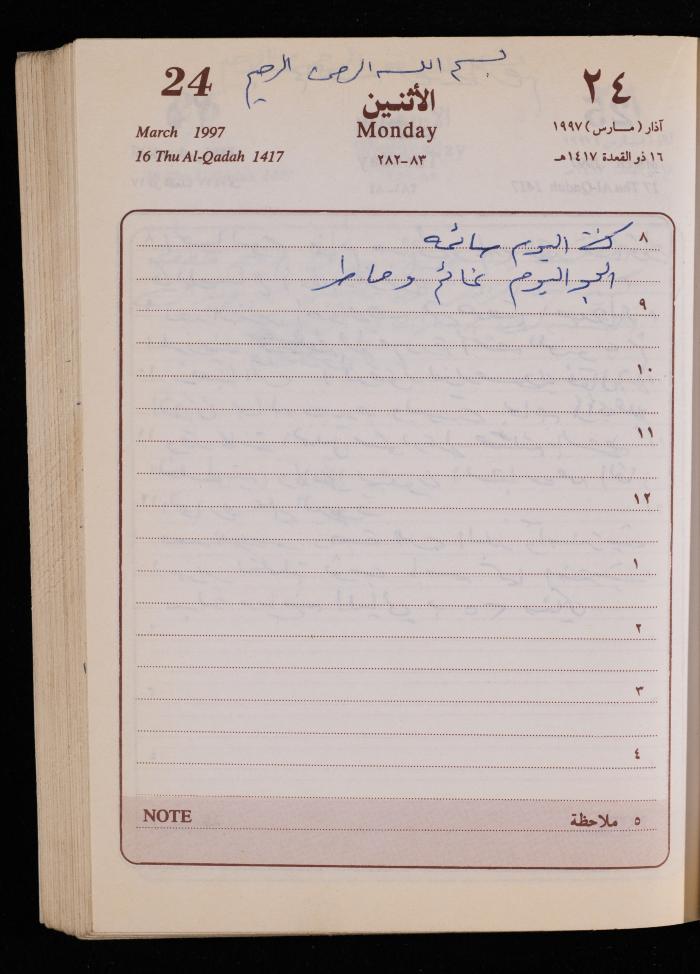 بسم الله الرحمن الرحيم
24
٢٤
الأثنين
March 1997
Monday
آذار (مارس) ١٩٩٧
16 Thu Al-Qadah 1417
٨٣-٢٨٢
١٦ ذو القعدة ١٤١٧هـ
٨ كنت اليوم صائمه
الجو اليوم غائم وماطر
٩
١٠
١١
١٢
١
٢
٣
٤
NOTE
٥ ملاحظة